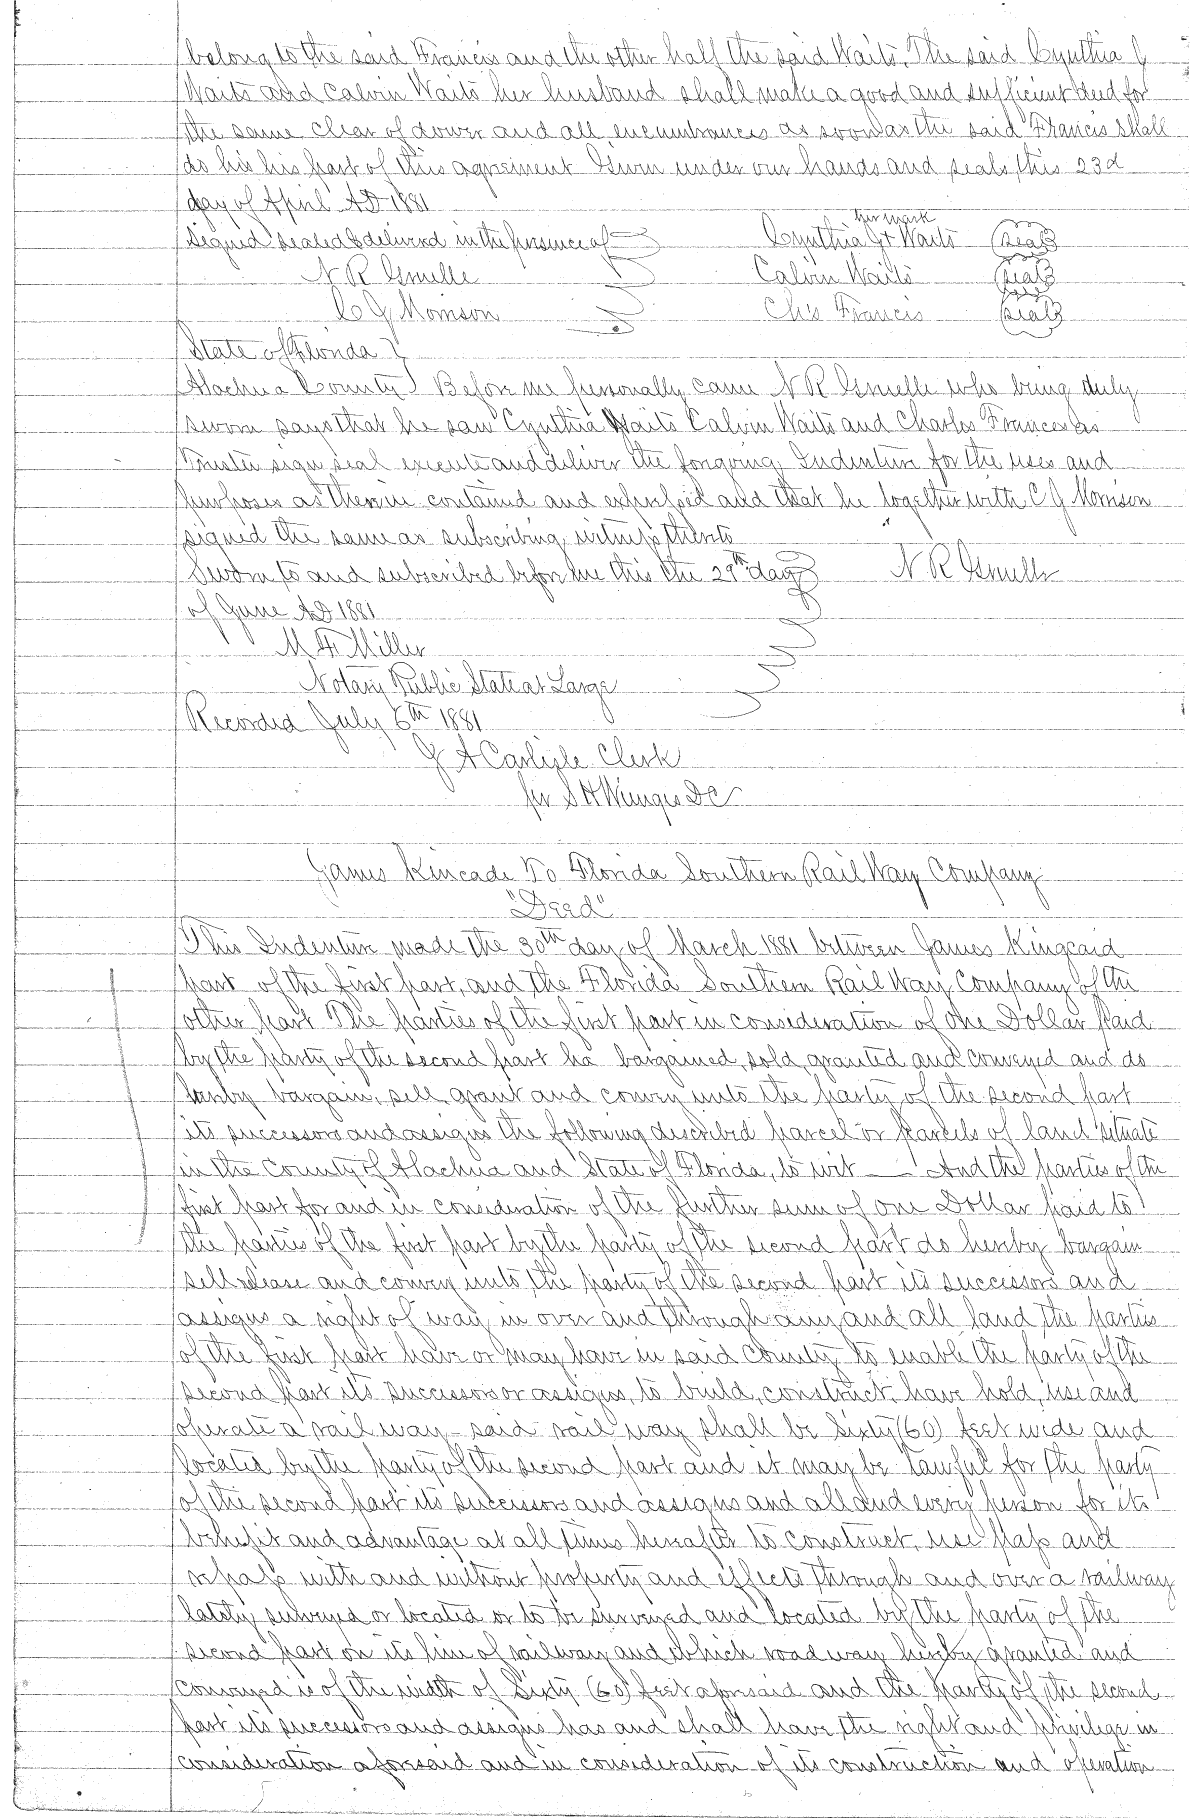 belong to the said Francis and the other half the said Waits. The said Cynthia J
Waits and Calvin Waits her husband shall make a good and sufficient deed for
the same clear of dower and all encumbrances as soon as the said Francis shall
do his his part of this agreement Given under our hands and seals, this 23d
day of April AD 1881
Signed sealed & delivered in the presence of
her mark
Cynthia J + Waits (seal)
N R Gruelle Calvin Waits (seal)
C J Morrison Chs Francis (seal)
State of Florida }
Alachua County } Before me personally came N R Gruelle who being duly
sworn says that he saw Cynthia Waits Calvin Waits and Charles Frances as
Trustee sign, seal execute and deliver the forgoing Indenture for the uses and
purposes as therein contained and expressed and that he together with C J Morrison
signed the same as subscribing witness thereto
Sworn to and subscribed before me this the 29th day N R Gruelle
of June AD 1881
M F Miller
Notary Public State at Large
Recorded July 6th 1881
J A Carlisle Clerk
per S H DC
James Kincade To Florida Southern Rail Way Company
"Deed"
This Indenture made the 30th day of March 1881 between James Kingcaid
part of the first part, and the Florida Southern Rail Way Company of the
other part The parties of the first part in consideration of One Dollar paid
by the party of the second part ha bargained, sold, granted and conveyed and do
hereby bargain, sell, grant and convey unto the party of the second part
its successors and assigns the following described parcel or parcels of land situate
in the County of Alachua and State of Florida, to wit — And the parties of the
first part for and in consideration of the further sum of one Dollar paid to
the parties of the first part by the party of the second part do hereby bargain
sell release and convey unto, the party of the second part its successors and
assigns a right of way in over and through any and all land, the parties
of the first part have or may have in said County, to enable the party of the
second part its successors or assigns, to build, construct, have hold, use and
operate a rail way - said rail way shall be Sixty (60) feet wide and
located by the party of the second part and it may be lawful for the party
of the second part its successors and assigns and all and every person for its
benefit and advantage at all times hereafter to construct, use pass and
repass with and without property and effects through and over a railway
lately surveyed or located or to be surveyed and located by the party of the
second part on its line of railway and which road way hereby granted and
conveyed is of the width of Sixty (60) feet aforesaid and the party of the second
part its successors and assigns has and shall have, the right and privilege in
consideration aforesaid and in consideration of its construction and operation